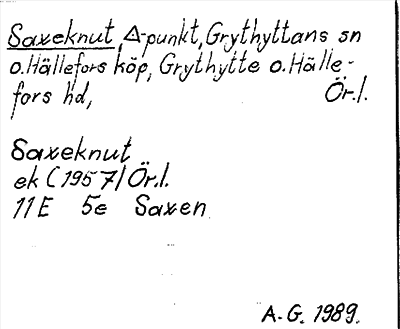 Saxeknut, Δ-punkt, Grythyttans sn
o. Hällefors köp, Grythytte o. Hälle-
fors hd, Ör.l.
Saxeknut
ek (1957) Ör.l.
11E 5e Saxen
A.G. 1989.